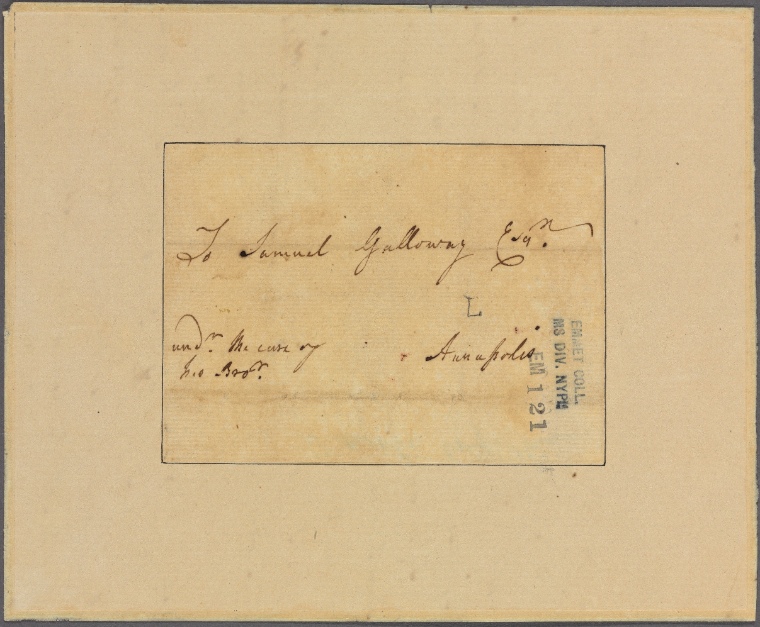 To Samuel Galloway Esqr.
L
undr. the care of
his Bror.
Annapolis
EMMET COLL.
MS DIV. NYPL
EM 121